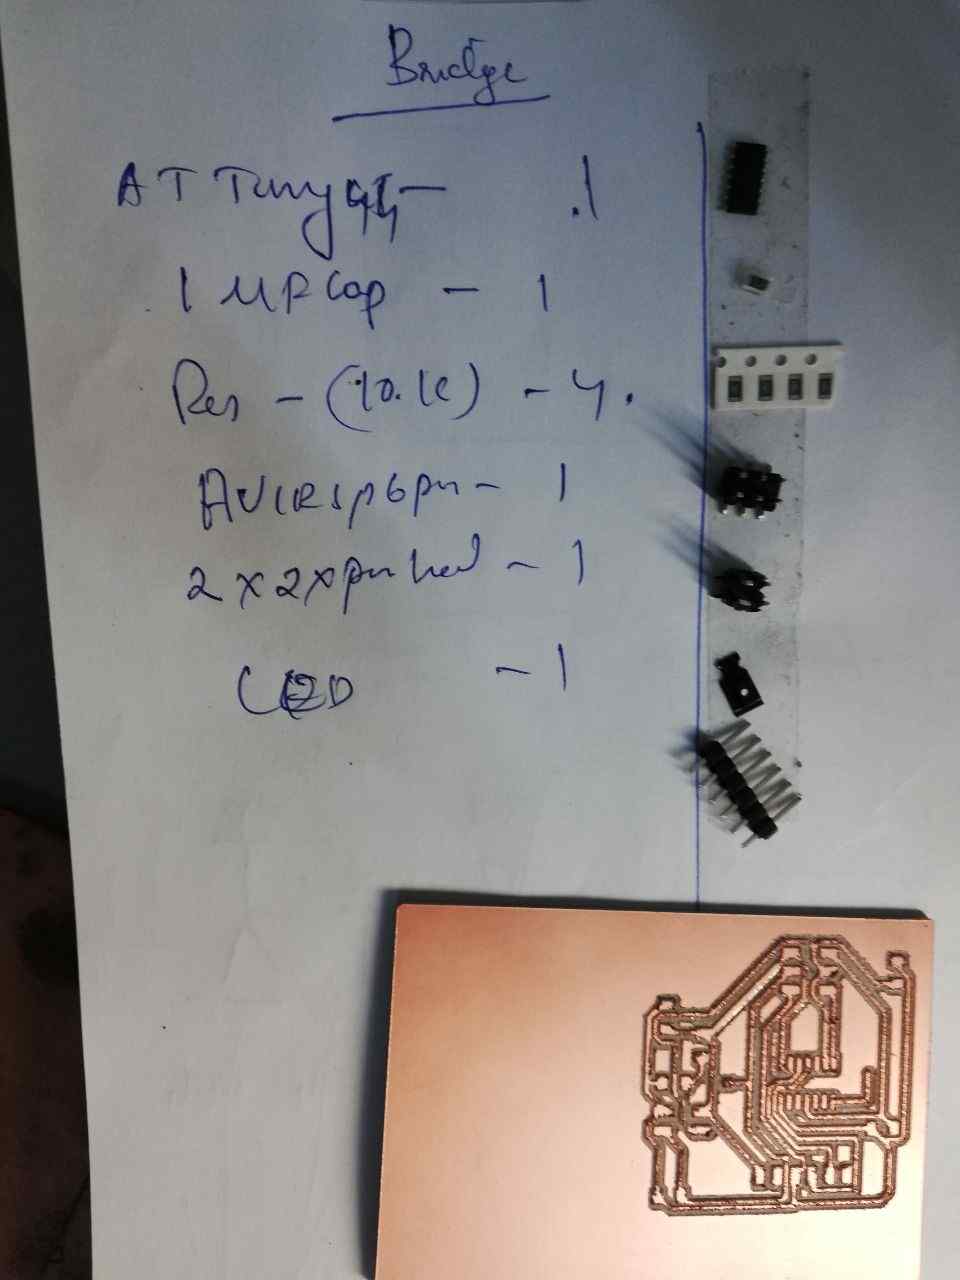 Bridge
ATTiny44 - .1
1 MF Cap - 1
Res - (10.k) - 4.
AVRISP 6pin - 1
2 x 2 x pin head - 1
LED - 1